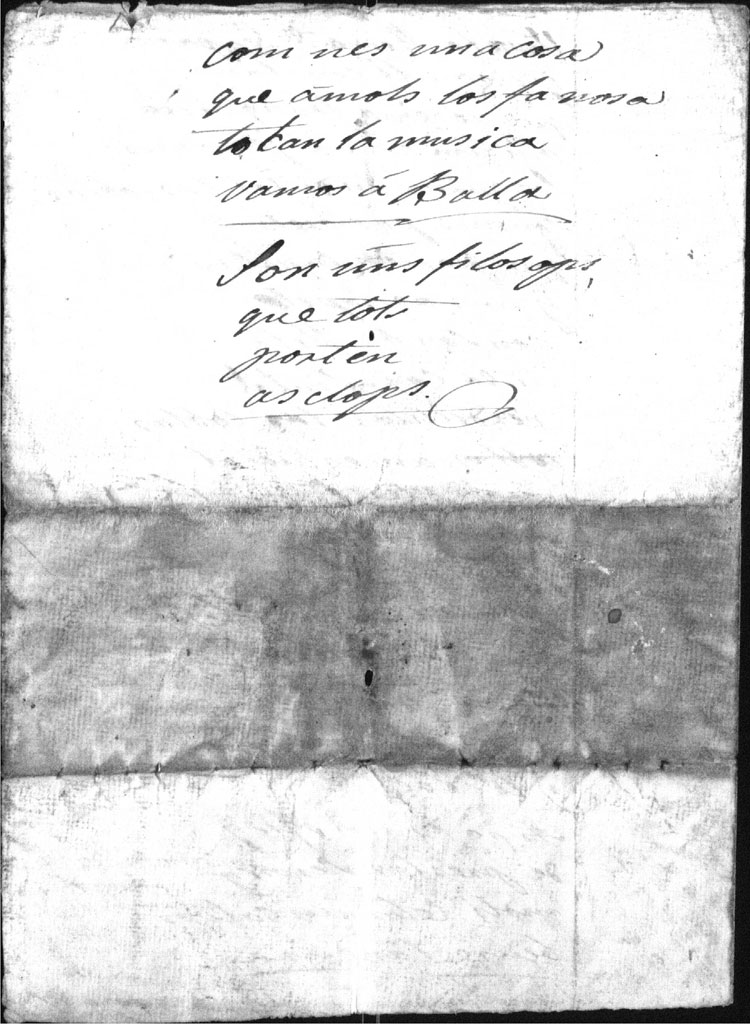 com nes una cosa
que ámols los fa nosa
tocan la musica
vamos á Balla
Son uns filosops,
que tots
porten
asclops.